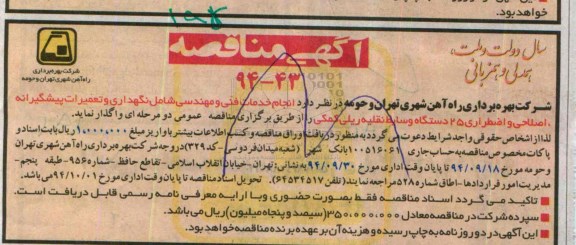 خواهدبود.
۱۹۵
سال دولت و ملت،
همدلی و همزبانی
آگهی مناقصه
۹۴-۴۳
شرکت بهره‌برداری
راه‌آهن شهری تهران و حومه
شرکت بهره‌برداری راه‌آهن شهری تهران و حومه در نظر دارد انجام خدمات فنی و مهندسی شامل نگهداری و تعمیرات پیشگیرانه
، اصلاحی و اضطراری ۲۵ دستگاه وسایط نقلیه ریلی کمکی را از طریق برگزاری مناقصه عمومی دو مرحله‌ای واگذار نماید.
لذا از اشخاص حقوقی واجد شرایط دعوت می‌گردد به منظور دریافت اوراق مناقصه و کسب اطلاعات بیشتر با واریز مبلغ ۱,۰۰۰,۰۰۰ ریال بابت اسناد و
پاکات مخصوص مناقصه به حساب جاری ۱۰۰۵۱۶۰۶۱ بانک شهر (شعبه میدان فردوسی - کد ۳۲۹) در وجه شرکت بهره‌برداری راه‌آهن شهری تهران
و حومه مورخ ۹۴/۰۹/۱۸ تا پایان وقت اداری مورخ ۹۴/۰۹/۳۰ به نشانی: تهران - خیابان انقلاب اسلامی - تقاطع حافظ - شماره ۹۵۶ - طبقه پنجم -
مدیریت امور قراردادها - اطاق شماره ۵۲۸ مراجعه نمایند (تلفن ۶۴۵۳۴۵۱۷). تحویل اسناد مناقصه تا پایان وقت اداری مورخ ۹۴/۱۰/۰۱ می‌باشد.
■ تاکید می‌گردد اسناد مناقصه فقط بصورت حضوری و با ارایه معرفی نامه رسمی قابل دریافت است.
■ سپرده شرکت در مناقصه معادل ۳۵۰,۰۰۰,۰۰۰ (سیصد و پنجاه میلیون) ریال می‌باشد.
■ این آگهی در دو روزنامه به چاپ رسیده و هزینه آن بر عهده برنده مناقصه خواهد بود.